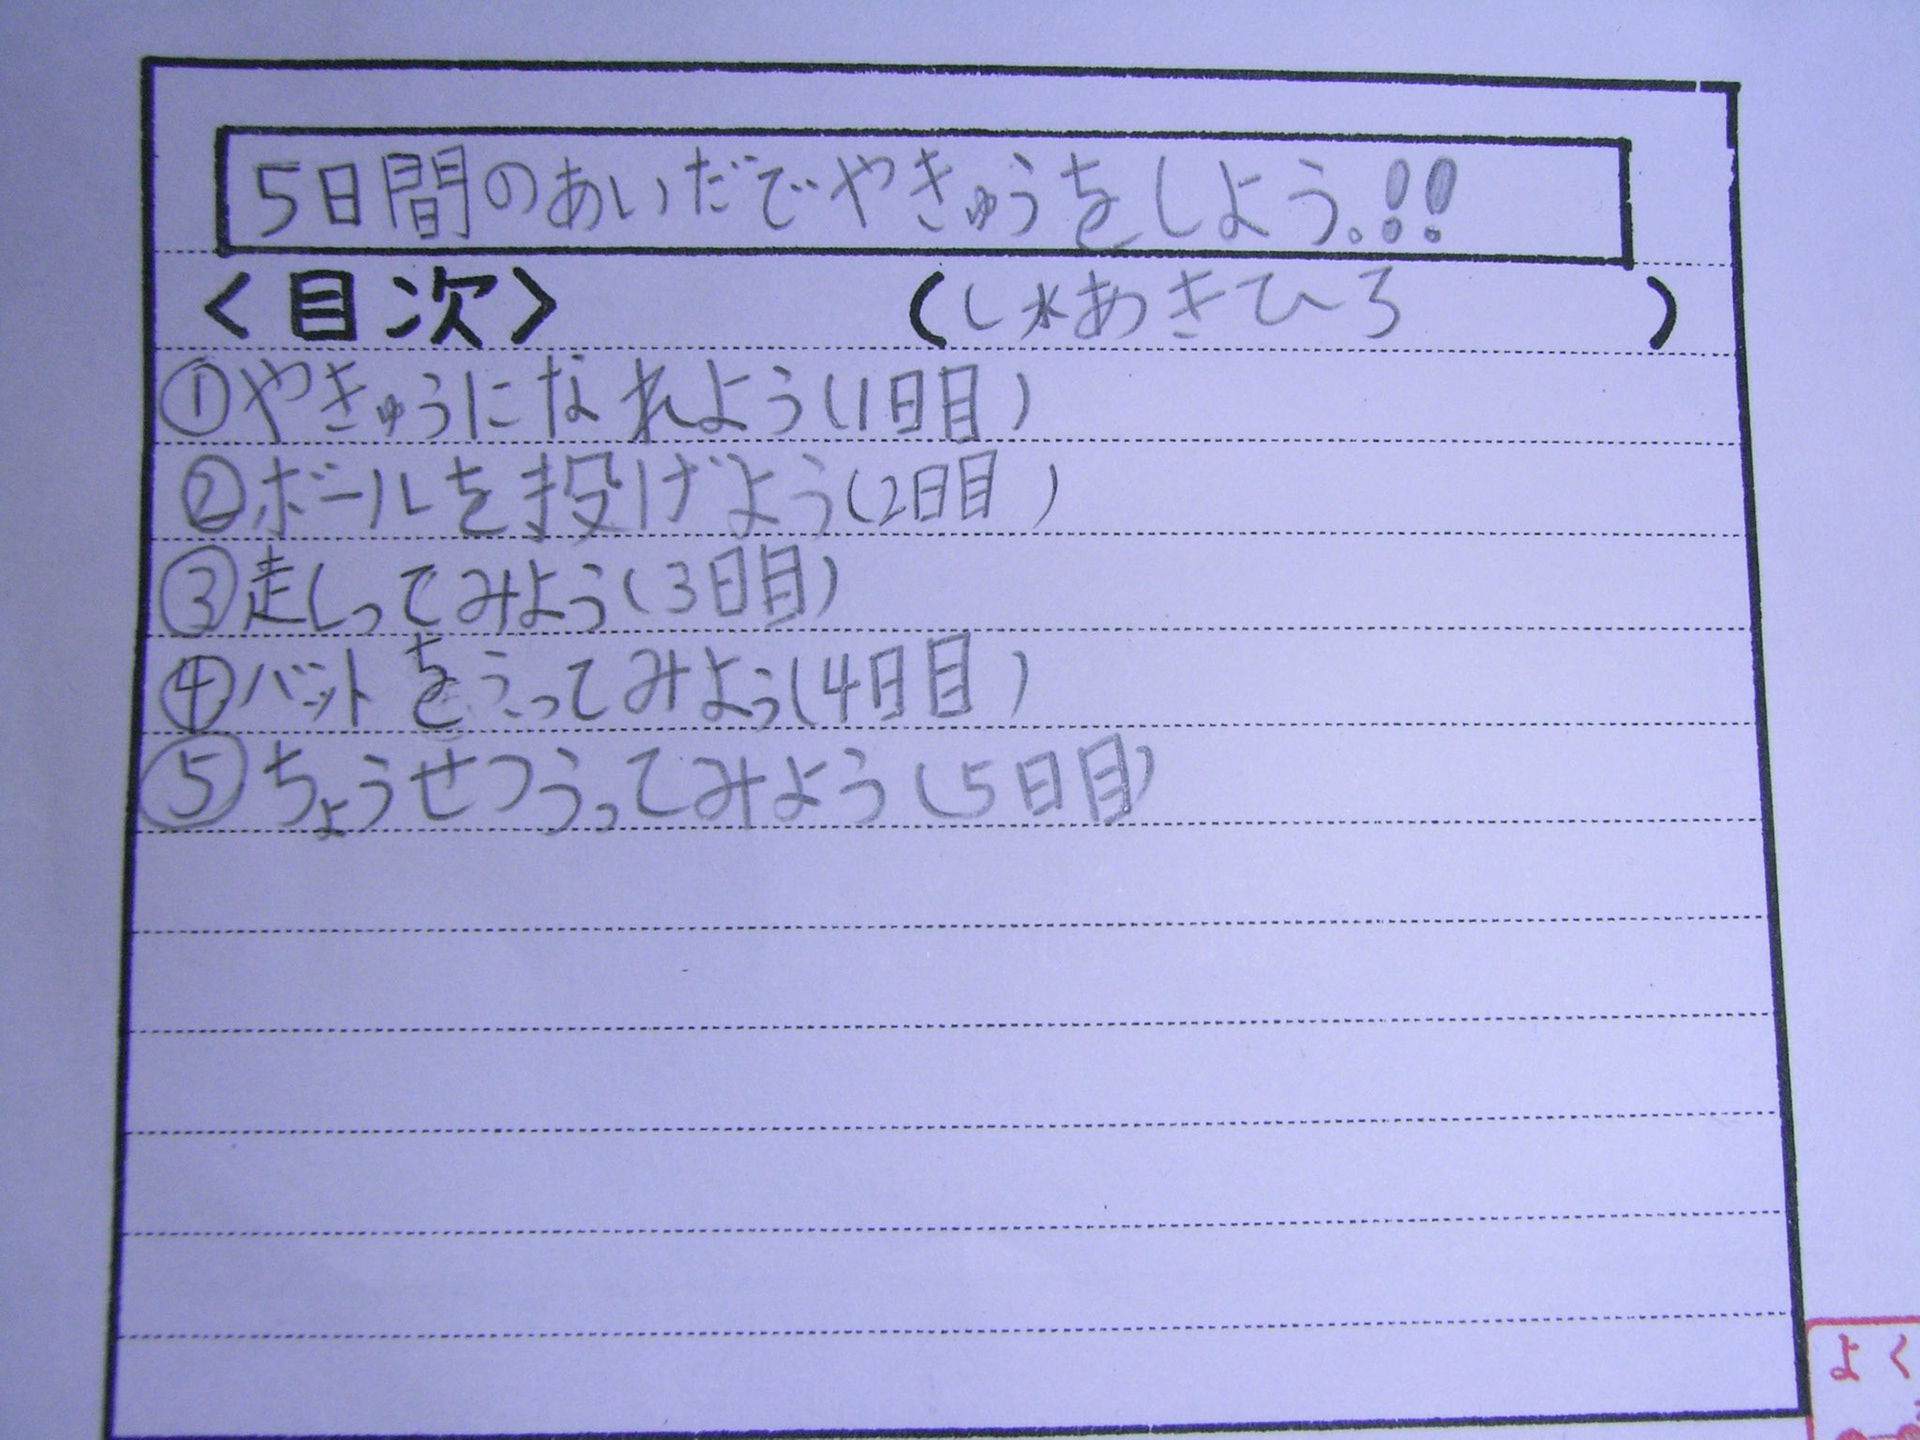 5日間のあいだでやきゅうをしよう。!!
<目次> (し水あきひろ )
①やきゅうになれよう(1日目)
②ボールを投げよう(2日目)
③走しってみよう(3日目)
④バットをうってみよう(4日目)
⑤ちょうせつうってみよう(5日目)
よく